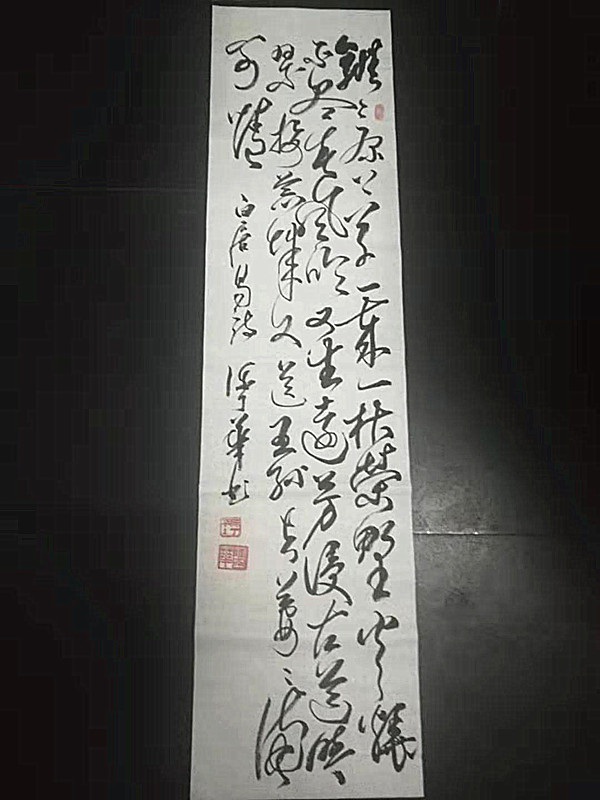 離〻原上草一歲一枯榮野火燒
不盡春風吹又生遠芳侵古道晴
翠接荒城又送王孫去萋〻滿
別情 白居易詩 華書